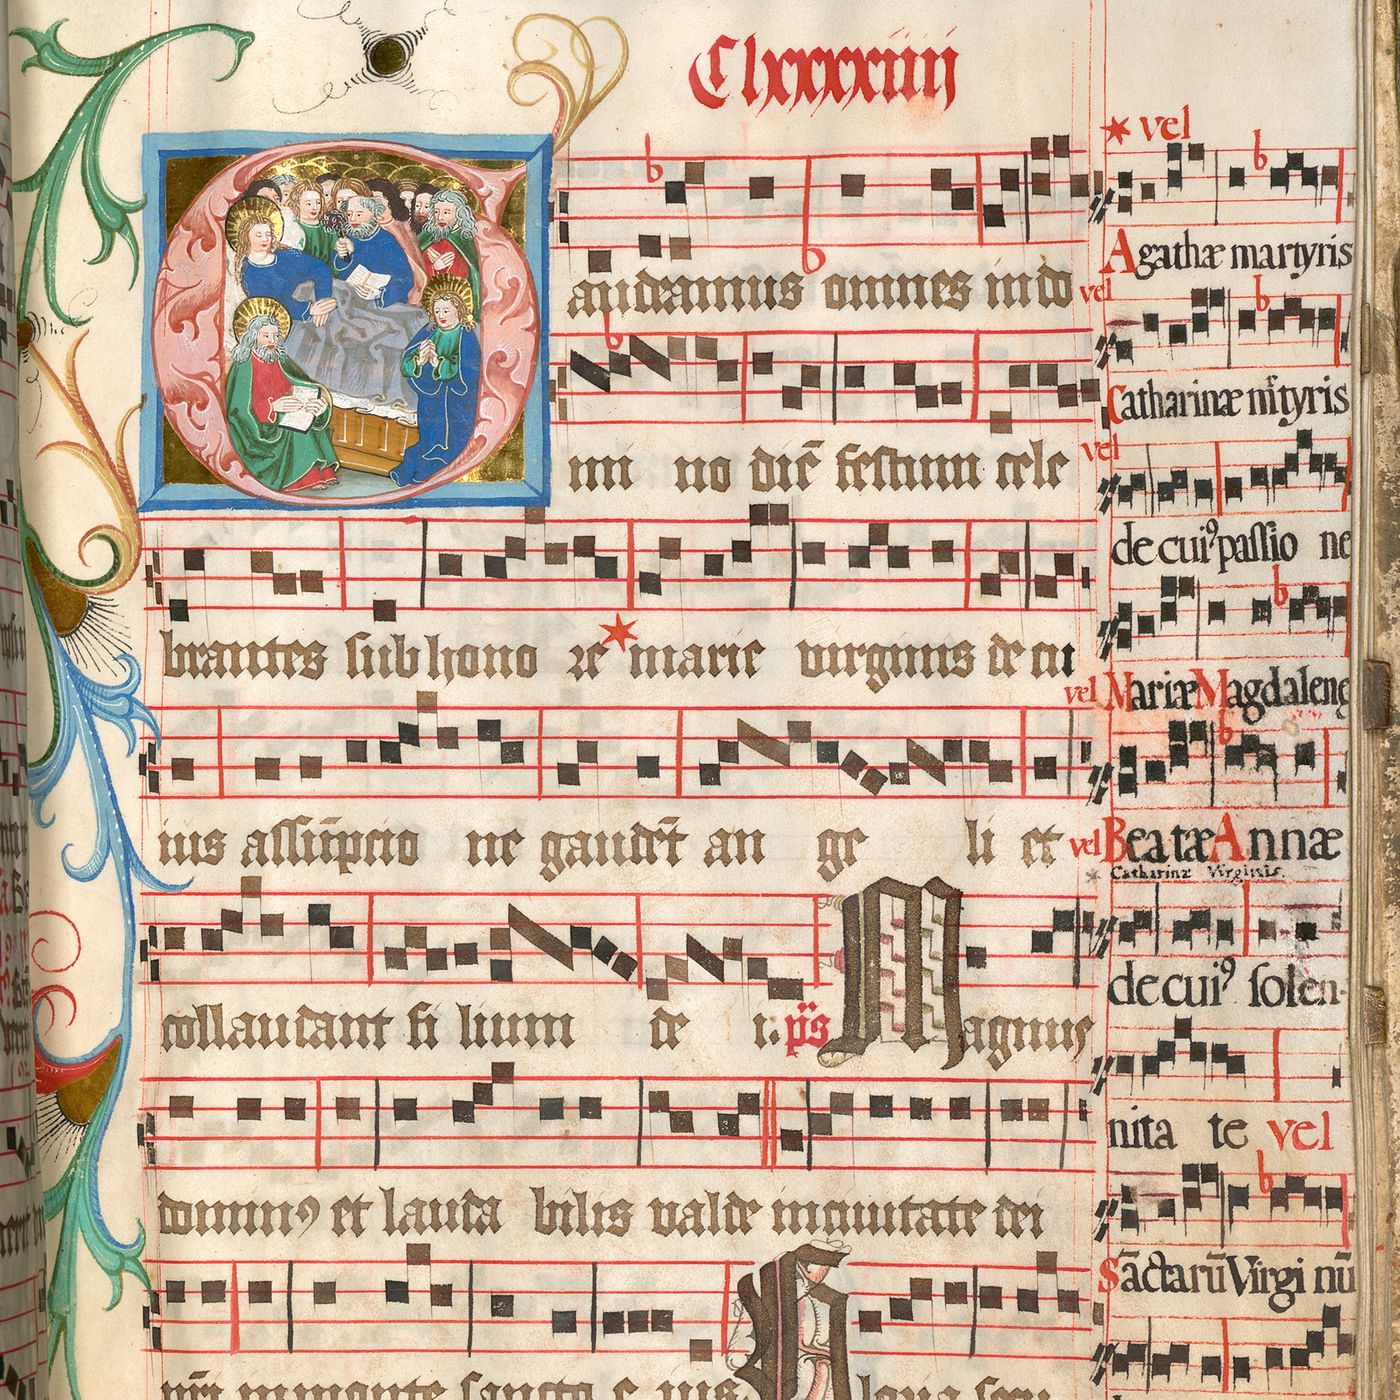 Clxxxxiiij
Gaudeamus omnes in do
mi no diē festum cele
brantes sub hono re * marie virginis de cu
ius assūpcio ne gaudēt an ge li et
collaudant fi lium de i. p̄s Magnus
domin⁹ et lauda bilis valde in ciuitate dei
nr̄i in monte sancto e ius.
* vel
Agathæ martyris
vel
Catharinæ m̄rtyris
vel
de cui⁹ passio ne
vel Mariæ Magdalenę
vel Beatæ Annæ
* Catharinæ Virginis.
de cui⁹ solen-
nita te vel
Sāctarū Virgi nū